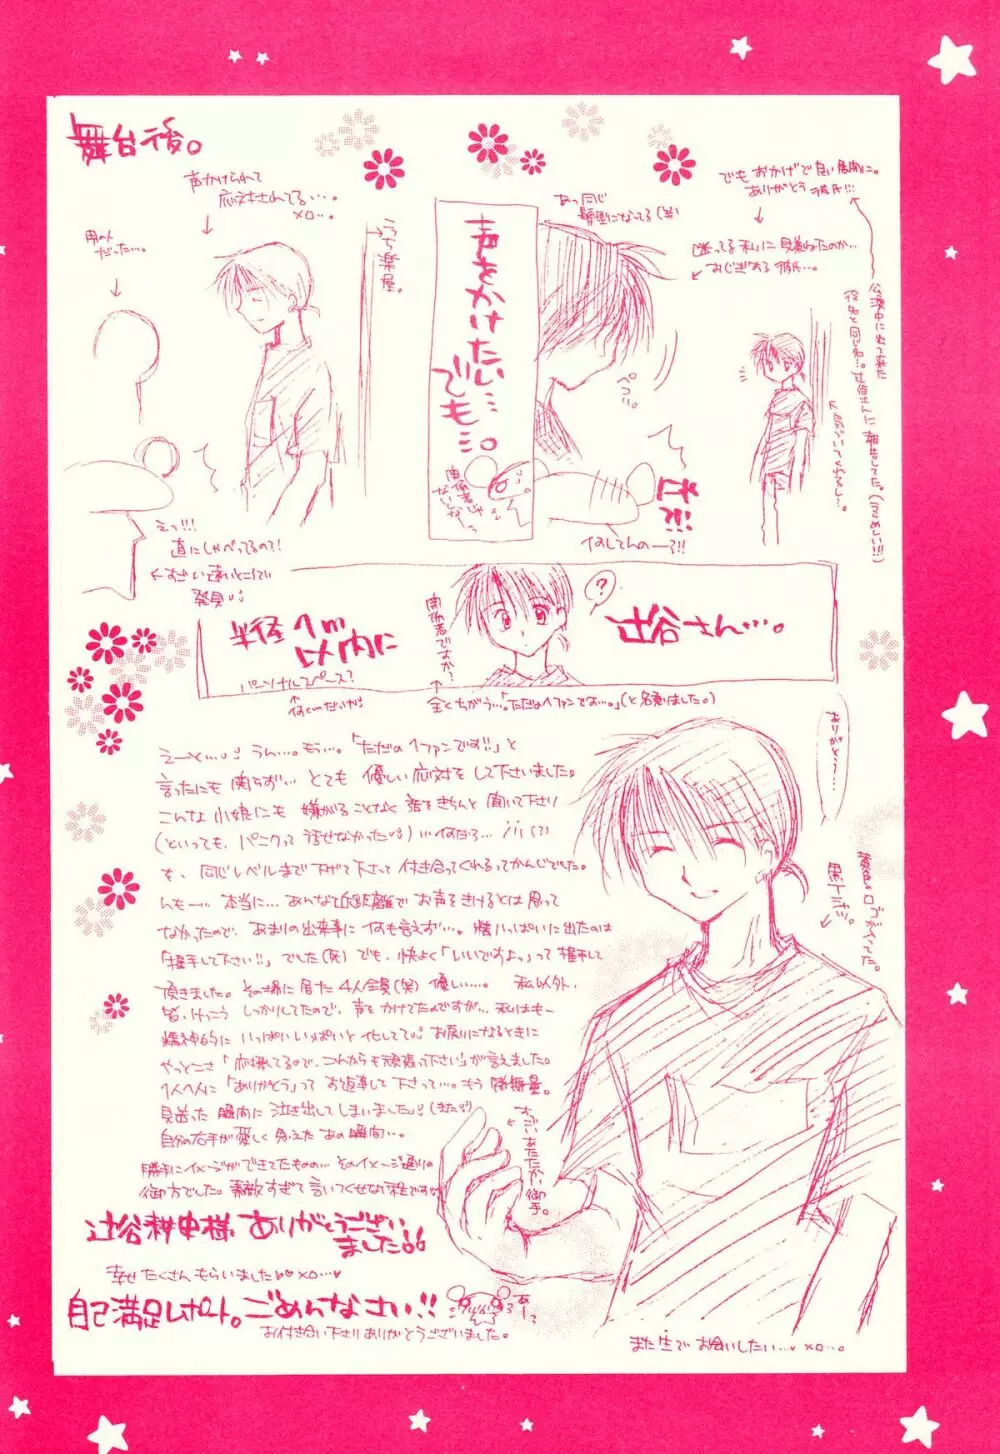 舞台後。
声かけられて
応対されてる…。
メロ…。
男の人
だった…。
うち楽屋。
声をかけたい…
でも…。
関係者じゃ
ないしなー
あっ同じ
髪型になってる(笑)
ペコッ。
でもおかげで良い展開に。
ありがとう彼氏!!!
迷ってる私に見かねたのか…
おじぎする彼氏…。
公演中にねて来た
役名と同じ名…。辻谷さんに報告してた。(うらめしい!!)
えっ!!!
直にしゃべってるの?!
すごい遠いところで
発見
なしてんのーっ?!!
半径1m
以内に
パーソナルスペース?
関係者ですか?
?
辻谷さん…。
全くちがう…。「ただの1ファンです…。」(と名乗りました。)
えーと…。うん…。もう…。「ただの1ファンです!!」と
言ったにも関らず… とても優しい応対をして下さいました。
こんな小娘にも嫌がることなく話をきちんと聞いて下さり
(といっても、パニクって話せなかった) …何だろ… (?)
も、同じレベルまで下げて下さって付き合ってくれるってかんじでした。
んもー… 本当に… あんな近距離でお声をきけるとは思って
なかったので、あまりの出来事に何も言えず…。精いっぱいに出たのは
「握手して下さい!!」でした(死) でも、快よく「いいですよ。」って握手して
頂きました。その場に居た4人全員(笑) 優しい…。 私以外、
皆、けっこうしっかりしてたので、声をかけてたのですが… 私はもー
精神的にいっぱいいっぱいと化してて。お戻りになるときに
やっとこさ「応援してるので、これからも頑張って下さい」が言えました。
1人1人に「ありがとう」ってお返事して下さって…。もう感無量。
見送った瞬間に泣き出してしまいました (またか)
自分の右手が愛しく見えたあの瞬間…。
勝手にイメージができてたものの… そのイメージ通りの
御方でした。素敵すぎて言いつくせない程です
ありがとう…。
黒Tシャツ。
すごいあたたかい御手。
辻谷耕史様、ありがとうござい
ました
幸せたくさんもらいました メロ…
自己満足レポート。ごめんなさい!!
お付き合い下さりありがとうございました。
また生でお会いしたい… メロ…。